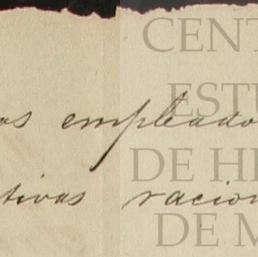 CENT
ESTU
os empleados
DE HI
tivas racion
DE M